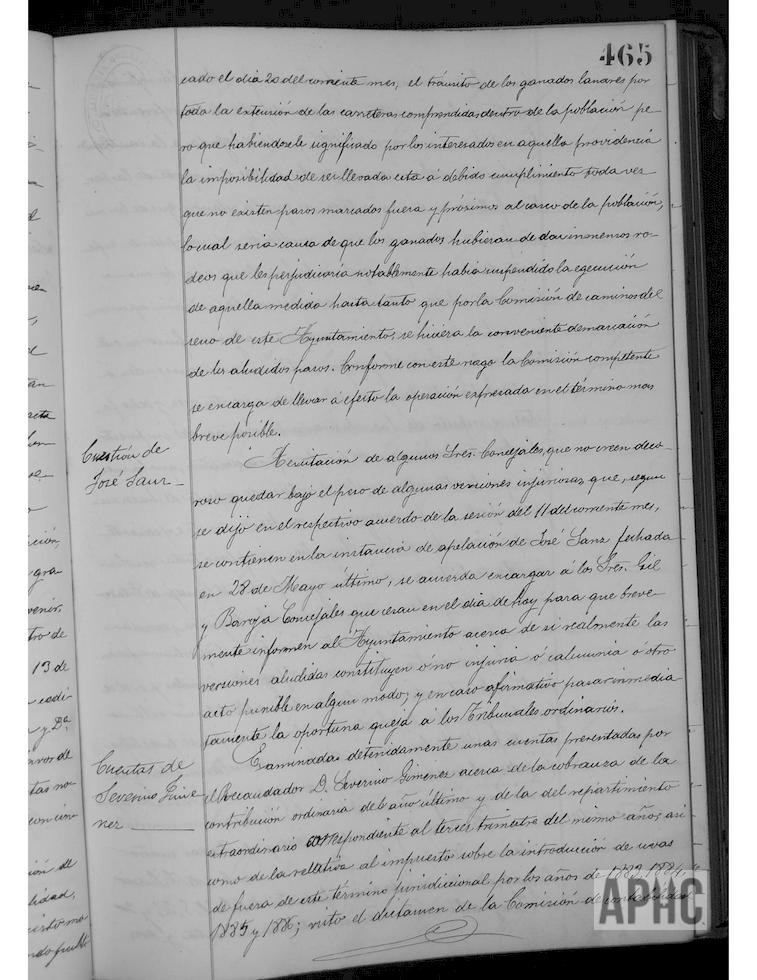 465
cado el dia 20 del corriente mes, el tránsito de los ganados lanares por
toda la extensión de las carreteras comprendidas dentro de la población pe-
ro que habiendosele significado por los interesados en aquella providencia
la imposibilidad de ser llevada esta á debido cumplimiento toda vez
que no existen pasos marcados fuera y próximos al casco de la población,
lo cual seria causa de que los ganados hubieran de dar inmensos ro-
deos que les perjudicaria notablemente habia suspendido la egecución
de aquella medida hasta tanto que por la Comisión de caminos del
seno de este Ayuntamiento, se hiciera la conveniente demarcación
de los aludidos pasos. Conforme con este ruego la Comisión competente
se encarga de llevar á efecto la operación expresada en el término mas
breve posible.
Cuestión de
José Sanz -
A excitación de algunos Sres. Concejales, que no creen deco-
roso quedar bajo el peso de algunas versiones injuriosas que, segun
se dijo en el respectivo acuerdo de la sesión del 11 del corriente mes,
se contienen en la instancia de apelación de José Sanz fechada
en 28 de Mayo último, se acuerda encargar á los Sres. Gil
y Barroja Concejales que cesan en el dia de hoy para que breve-
mente informen al Ayuntamiento acerca de si realmente las
versiones aludidas constituyen ó no injuria ó calumnia ó otro
acto punible en algun modo; y en caso afirmativo pasar inmedia-
tamente la oportuna queja á los Tribunales ordinarios.
Cuentas de
Severino Gime
nez
Examinadas detenidamente unas cuentas presentadas por
el Recaudador D. Severino Gimenez acerca de la cobranza de la
contribución ordinaria del año último y de la del repartimiento
extraordinario correspondiente al tercer trimestre del mismo año; asi
como de la relativa al impuesto sobre la introducción de uvas
de fuera de este término jurisdiccional por los años de 1883, 1884,
1885 y 1886; visto el dictamen de la Comisión de contabilidad
APHC